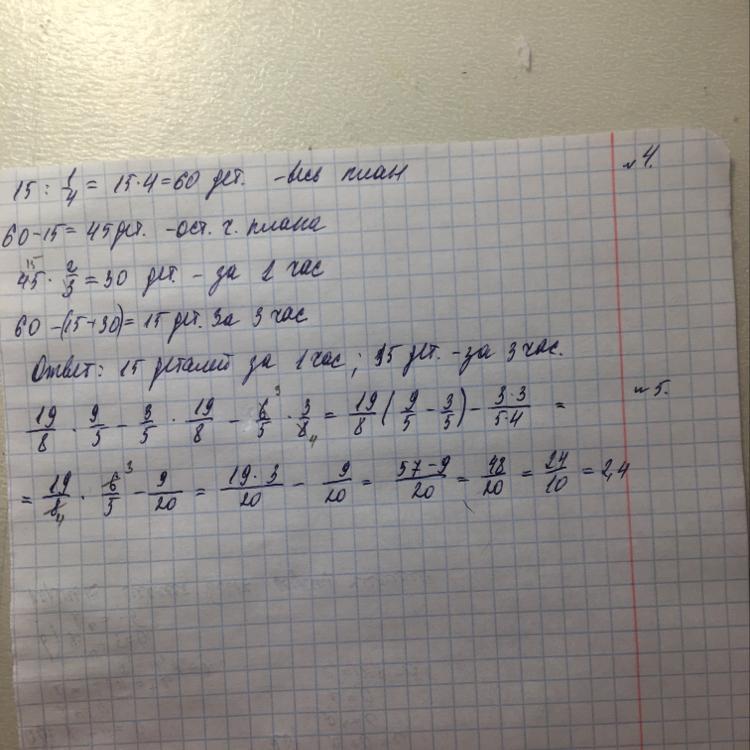 15 : 1/4 = 15·4=60 дет. -весь план №4.
60-15=45 дет. -ост. ч. плана
45 · 2/3 = 30 дет. - за 1 час
60-(15+30)=15 дет. за 3 час
Ответ: 15 деталей за 1 час; 15 дет. -за 3 час.
19/8 · 9/5 - 3/5 · 19/8 - 6/5 · 3/8 = 19/8 (9/5 - 3/5) - 3·3/5·4 = №5.
= 19/8 · 6/5 - 9/20 = 19·3/20 - 9/20 = 57-9/20 = 48/20 = 24/10 = 2,4